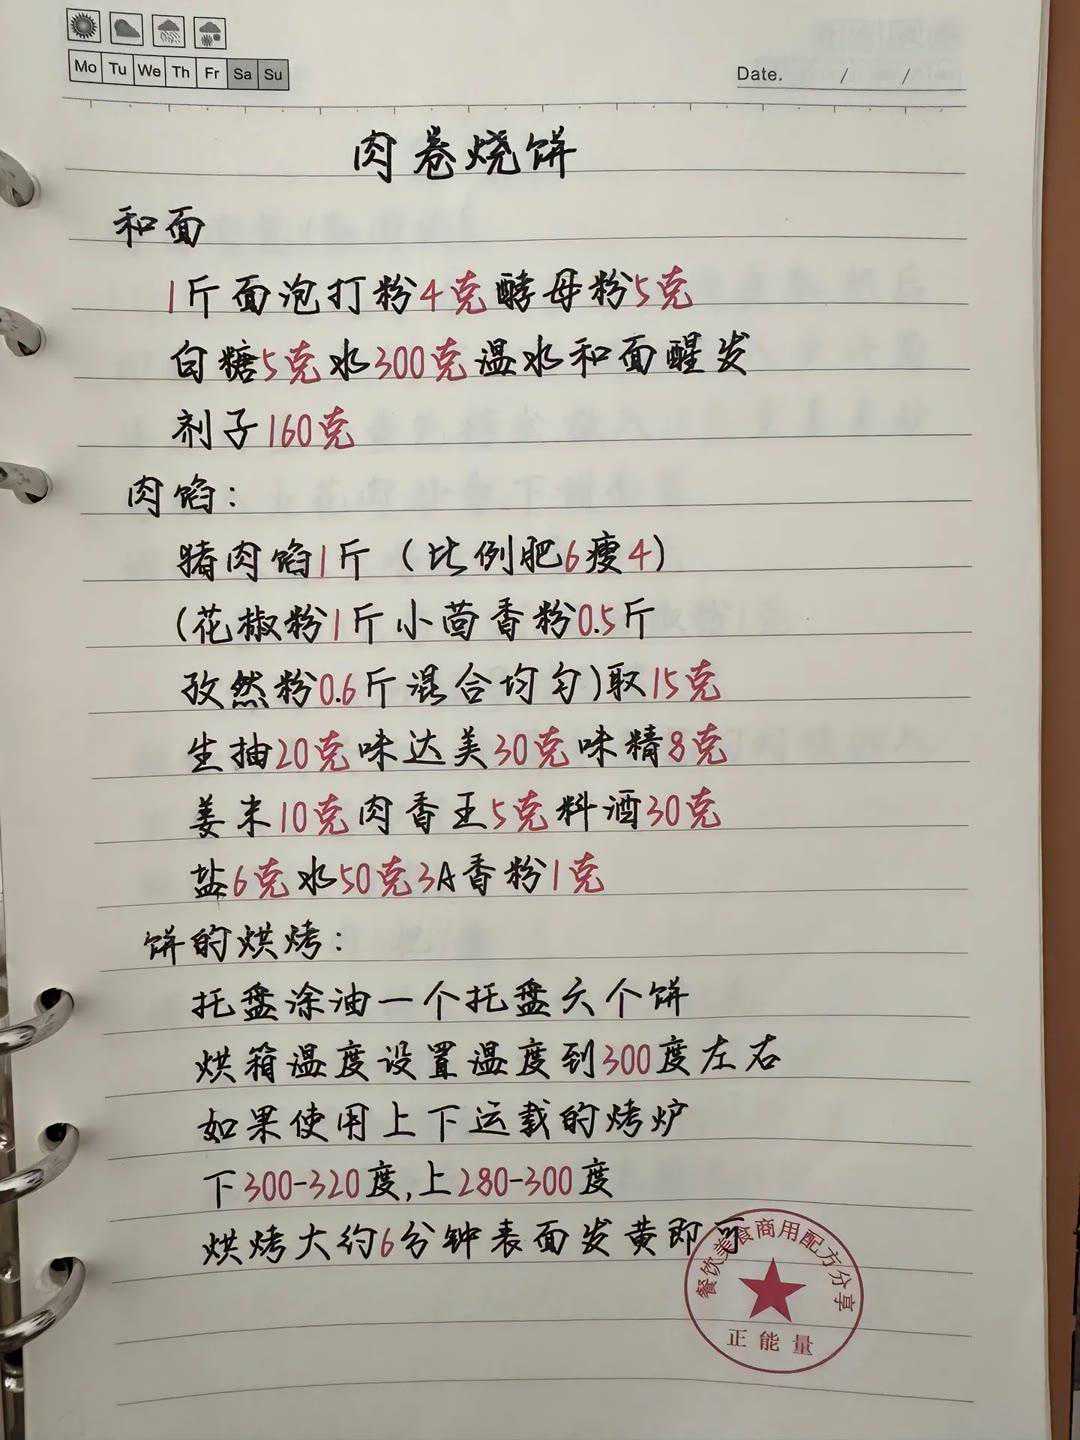 Mo Tu We Th Fr Sa Su
Date. / /
肉卷烧饼
和面
1斤面泡打粉4克酵母粉5克
白糖5克水300克温水和面醒发
剂子160克
肉馅：
猪肉馅1斤（比例肥6瘦4）
(花椒粉1斤小茴香粉0.5斤
孜然粉0.6斤混合均匀)取15克
生抽20克味达美30克味精8克
姜末10克肉香王5克料酒30克
盐6克水50克3A香粉1克
饼的烘烤：
托盘涂油一个托盘六个饼
烘箱温度设置温度到300度左右
如果使用上下运载的烤炉
下300-320度,上280-300度
烘烤大约6分钟表面发黄即可
餐饮美食商用配方分享
正能量